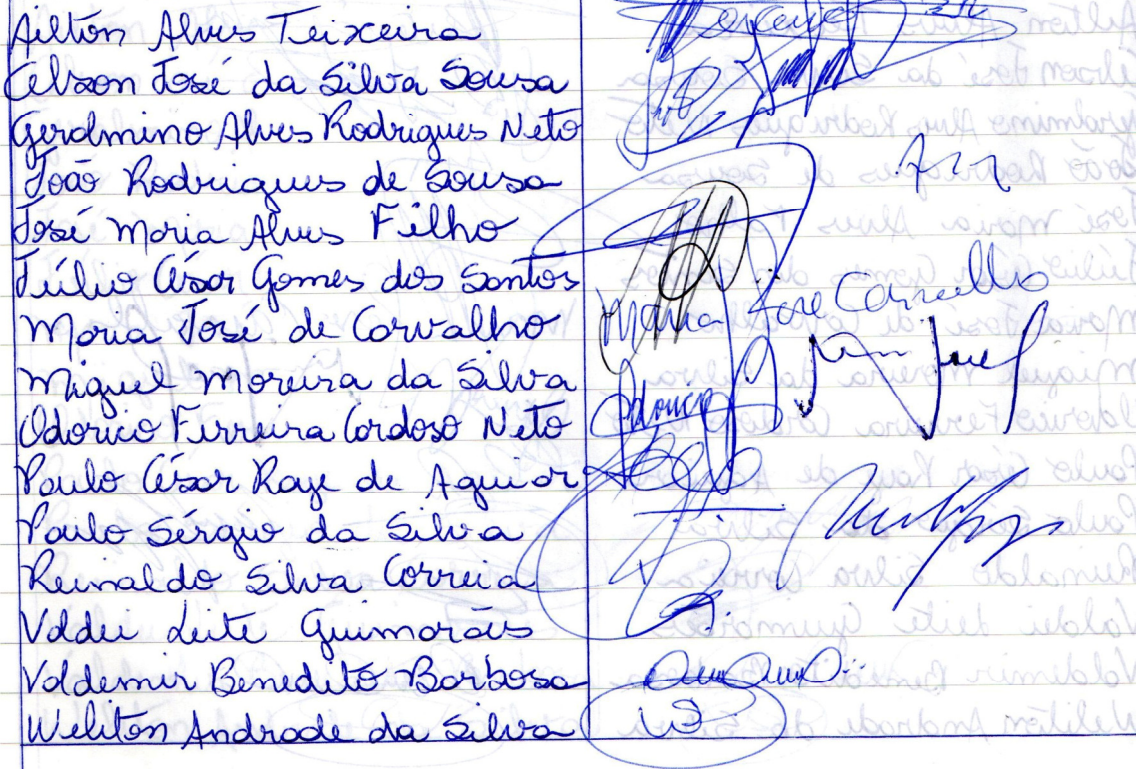 Ailton Alves Teixeira
Celson José da Silva Sousa
Gerolmino Alves Rodrigues Neto
João Rodrigues de Sousa
José Maria Alves Filho
Júlio César Gomes dos Santos
Maria José de Carvalho Maria José Carvalho
Miguel Moreira da Silva
Odorico Ferreira Cardoso Neto Odorico
Paulo César Raye de Aguiar
Paulo Sérgio da Silva
Reinaldo Silva Correia
Valdei Leite Guimarães
Valdemir Benedito Barbosa
Weliton Andrade da Silva